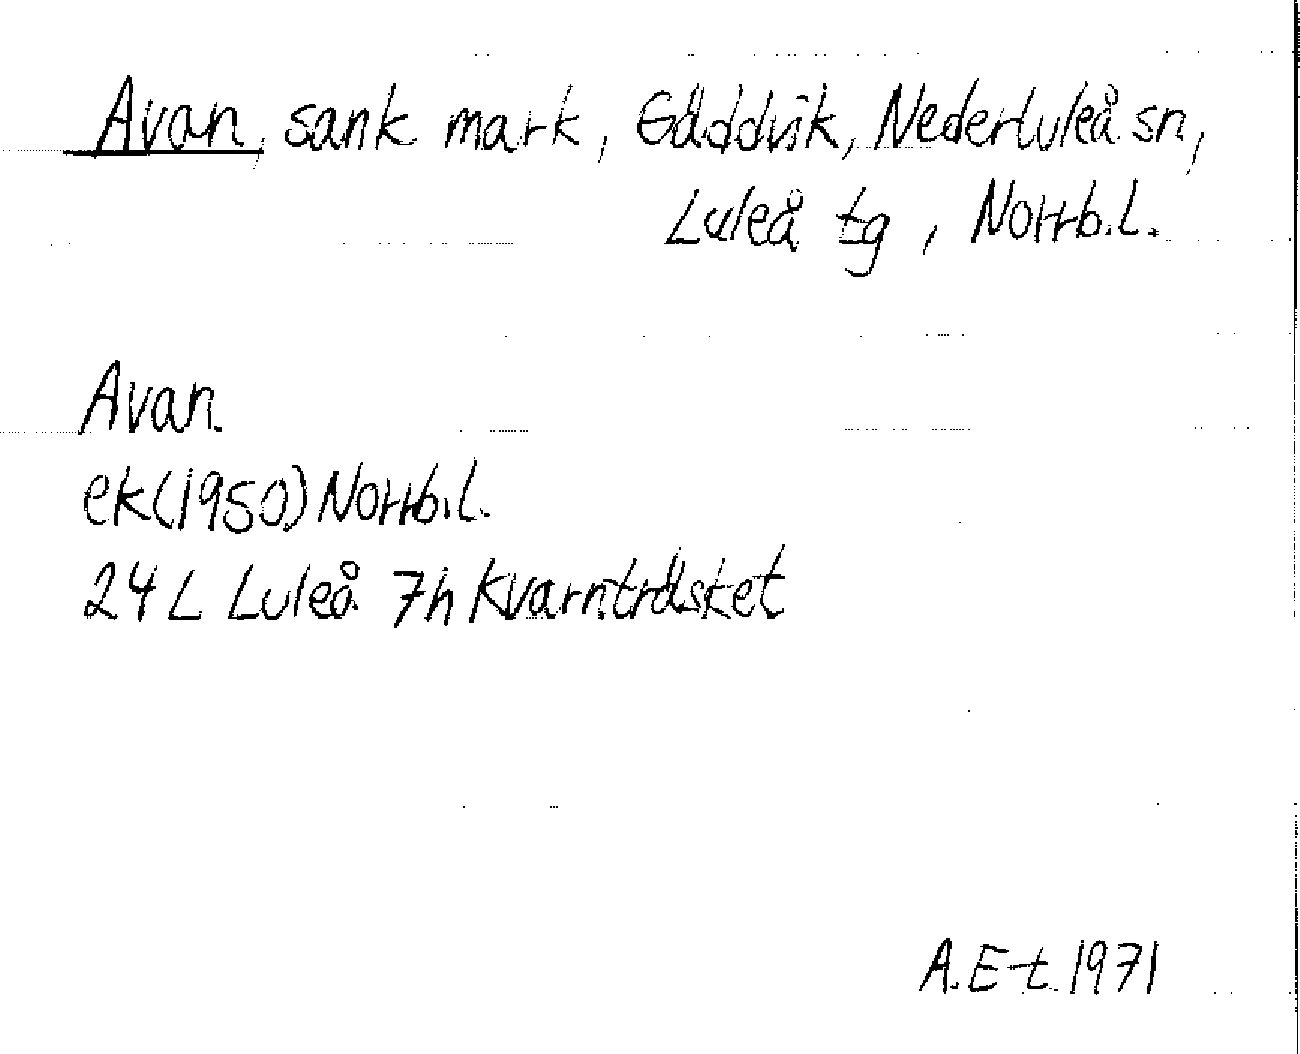 Avan, sank mark, Gäddvik, Nederluleå sn,
Luleå tg, Norrb.l.
Avan.
ek(1950) Norrb.l.
24 L Luleå 7h Kvarnträsket
A.E-t. 1971